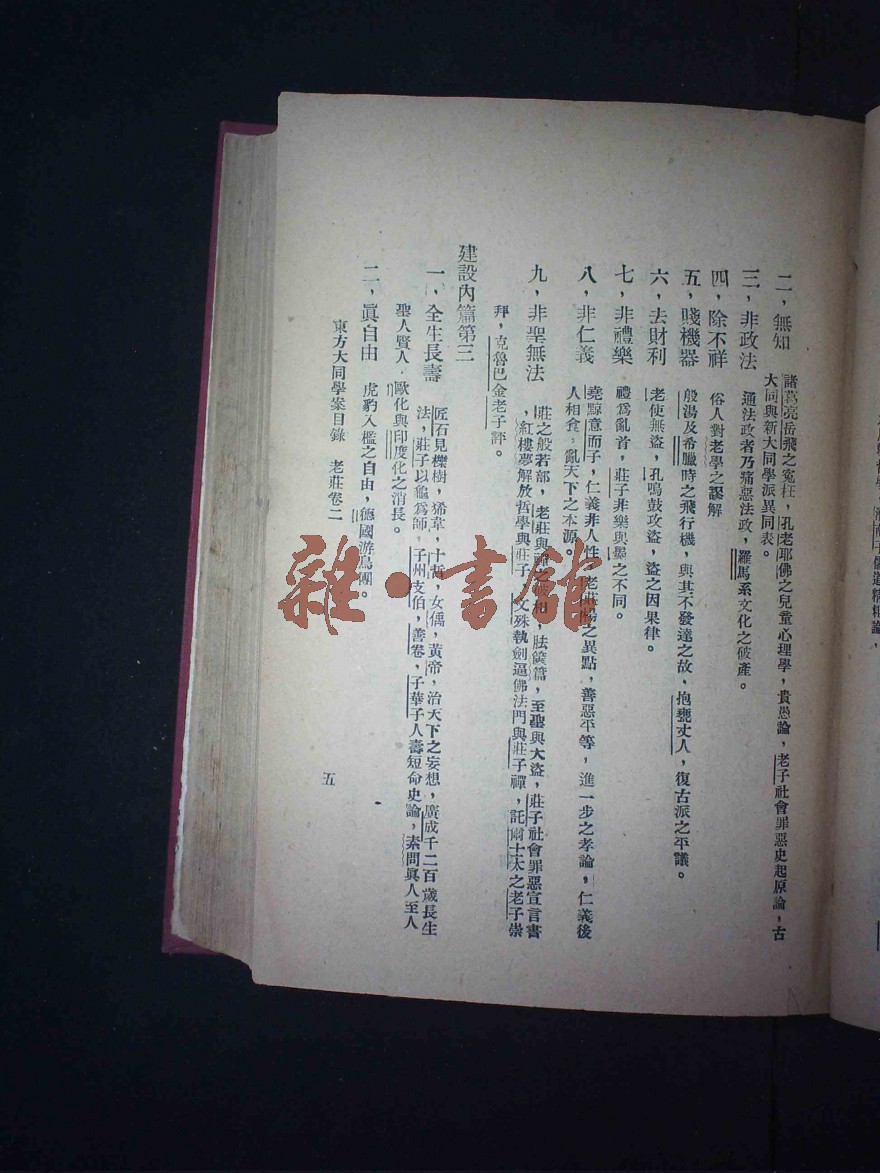 二，無知
諸葛亮岳飛之寃枉，孔老耶佛之兒童心理學，貴愚論，老子社會罪惡史起原論，古
大同與新大同學派異同表。
三，非政法
通法政者乃痛惡法政，羅馬系文化之破產。
四，除不祥
俗人對老學之謬解
五，賤機器
般湯及希臘時之飛行機，與其不發達之故，抱甕丈人，復古派之平議。
六，去財利
老使無盜，孔鳴鼓攻盜，盜之因果律。
七，非禮樂
禮爲亂首，莊子非樂與墨之不同。
八，非仁義
堯黥意而子，仁義非人性，老莊之異點，善惡平等，進一步之孝論，仁義後
人相食，亂天下之本源。
九，非聖無法
莊之般若部，老莊與禪之破相，胠篋篇，至聖與大盜，莊子社會罪惡宣言書
，紅樓夢解放哲學與莊子，文殊執劍逼佛法門與莊子禪，託爾士太之老子崇
拜，克魯巴金老子評。
建設內篇第三
一，全生長壽
匠石見櫟樹，狶韋，十哲，女偊，黃帝，治天下之妄想，廣成千二百歲長生
法，莊子以龜爲師，子州支伯，善卷，子華子人壽短命史論，素問眞人至人
聖人賢人，歐化與印度化之消長。
二，眞自由
虎豹入檻之自由，德國游鳥團。
東方大同學案目錄　老莊卷二
五
雜·書館